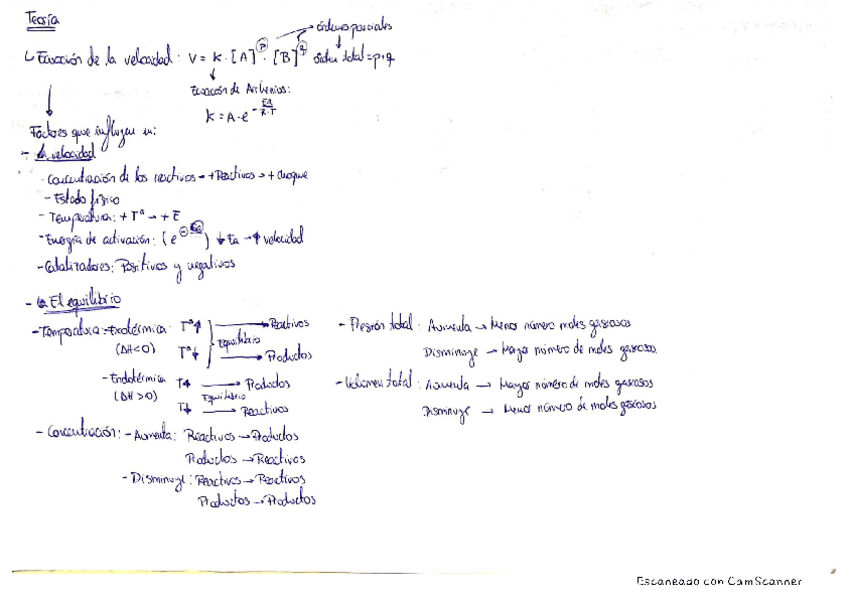 Teoría
órdenes parciales
↳ Ecuación de la velocidad: V = k · [A]^p · [B]^q orden total = p+q
Ecuación de Arrhenius:
k = A · e^-Ea/R·T
Factores que influyen en:
- La velocidad
- Concentración de los reactivos → + Reactivos → + choque
- Estado físico
- Temperatura: + Tª → + E
- Energía de activación: (e^-Ea) ↓ Ea → ↑ velocidad
- Catalizadores: Positivos y negativos
- El equilibrio
- Temperatura: - Exotérmica: Tª↑ → Reactivos
(ΔH<0) Tª↓ Equilibrio → Productos
- Endotérmica T↑ → Productos
(ΔH>0) Equilibrio
T↓ → Reactivos
- Concentración: - Aumenta: Reactivos → Productos
Productos → Reactivos
- Disminuye: Reactivos → Reactivos
Productos → Productos
- Presión total: Aumenta → Menor número moles gaseosos
Disminuye → Mayor número de moles gaseosos
- Volumen total: Aumenta → Mayor número de moles gaseosos
Disminuye → Menor número de moles gaseosos
Escaneado con CamScanner